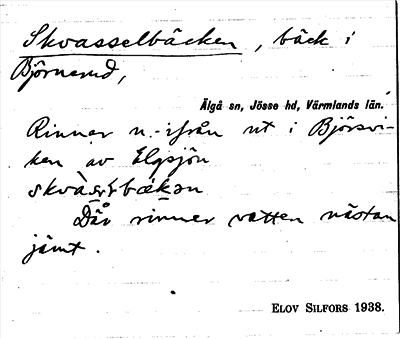 Skvasselbäcken, bäck i
Björnerud,
Älgå sn, Jösse hd, Värmlands län.
Rinner n.-ifrån ut i Björsvi-
ken av Elgsjön
Där rinner vatten nästan
jämt.
ELOV SILFORS 1938.